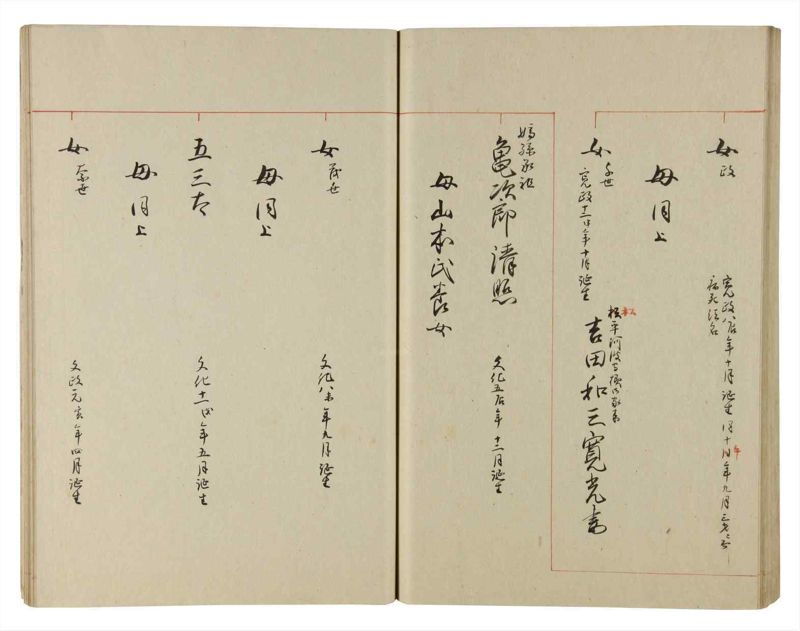 女 政
寛政八辰年十月誕生 同十
年九月
病死法名
母同上
女 千世
寛政十二申年十月誕生
松
松平阿波守様御家来
吉田和三寛光妻
嫡孫承祖
亀次郎 清照
文化五辰年十二月誕生
母山本氏養女
女 茂世
文化八未年九月誕生
母同上
五三太
文化十一戌年五月誕生
母同上
女 奈世
文政元寅年四月誕生